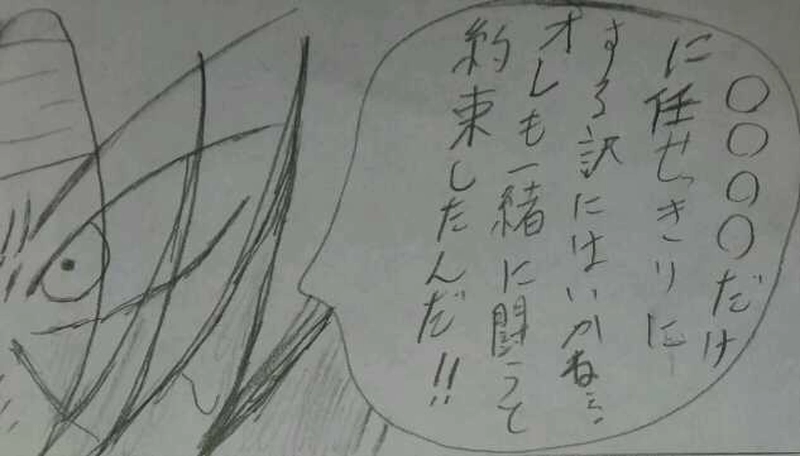 〇〇〇〇だけ
に任せっきりに
する訳にはいかねぇ
オレも一緒に闘って
約束したんだ!!